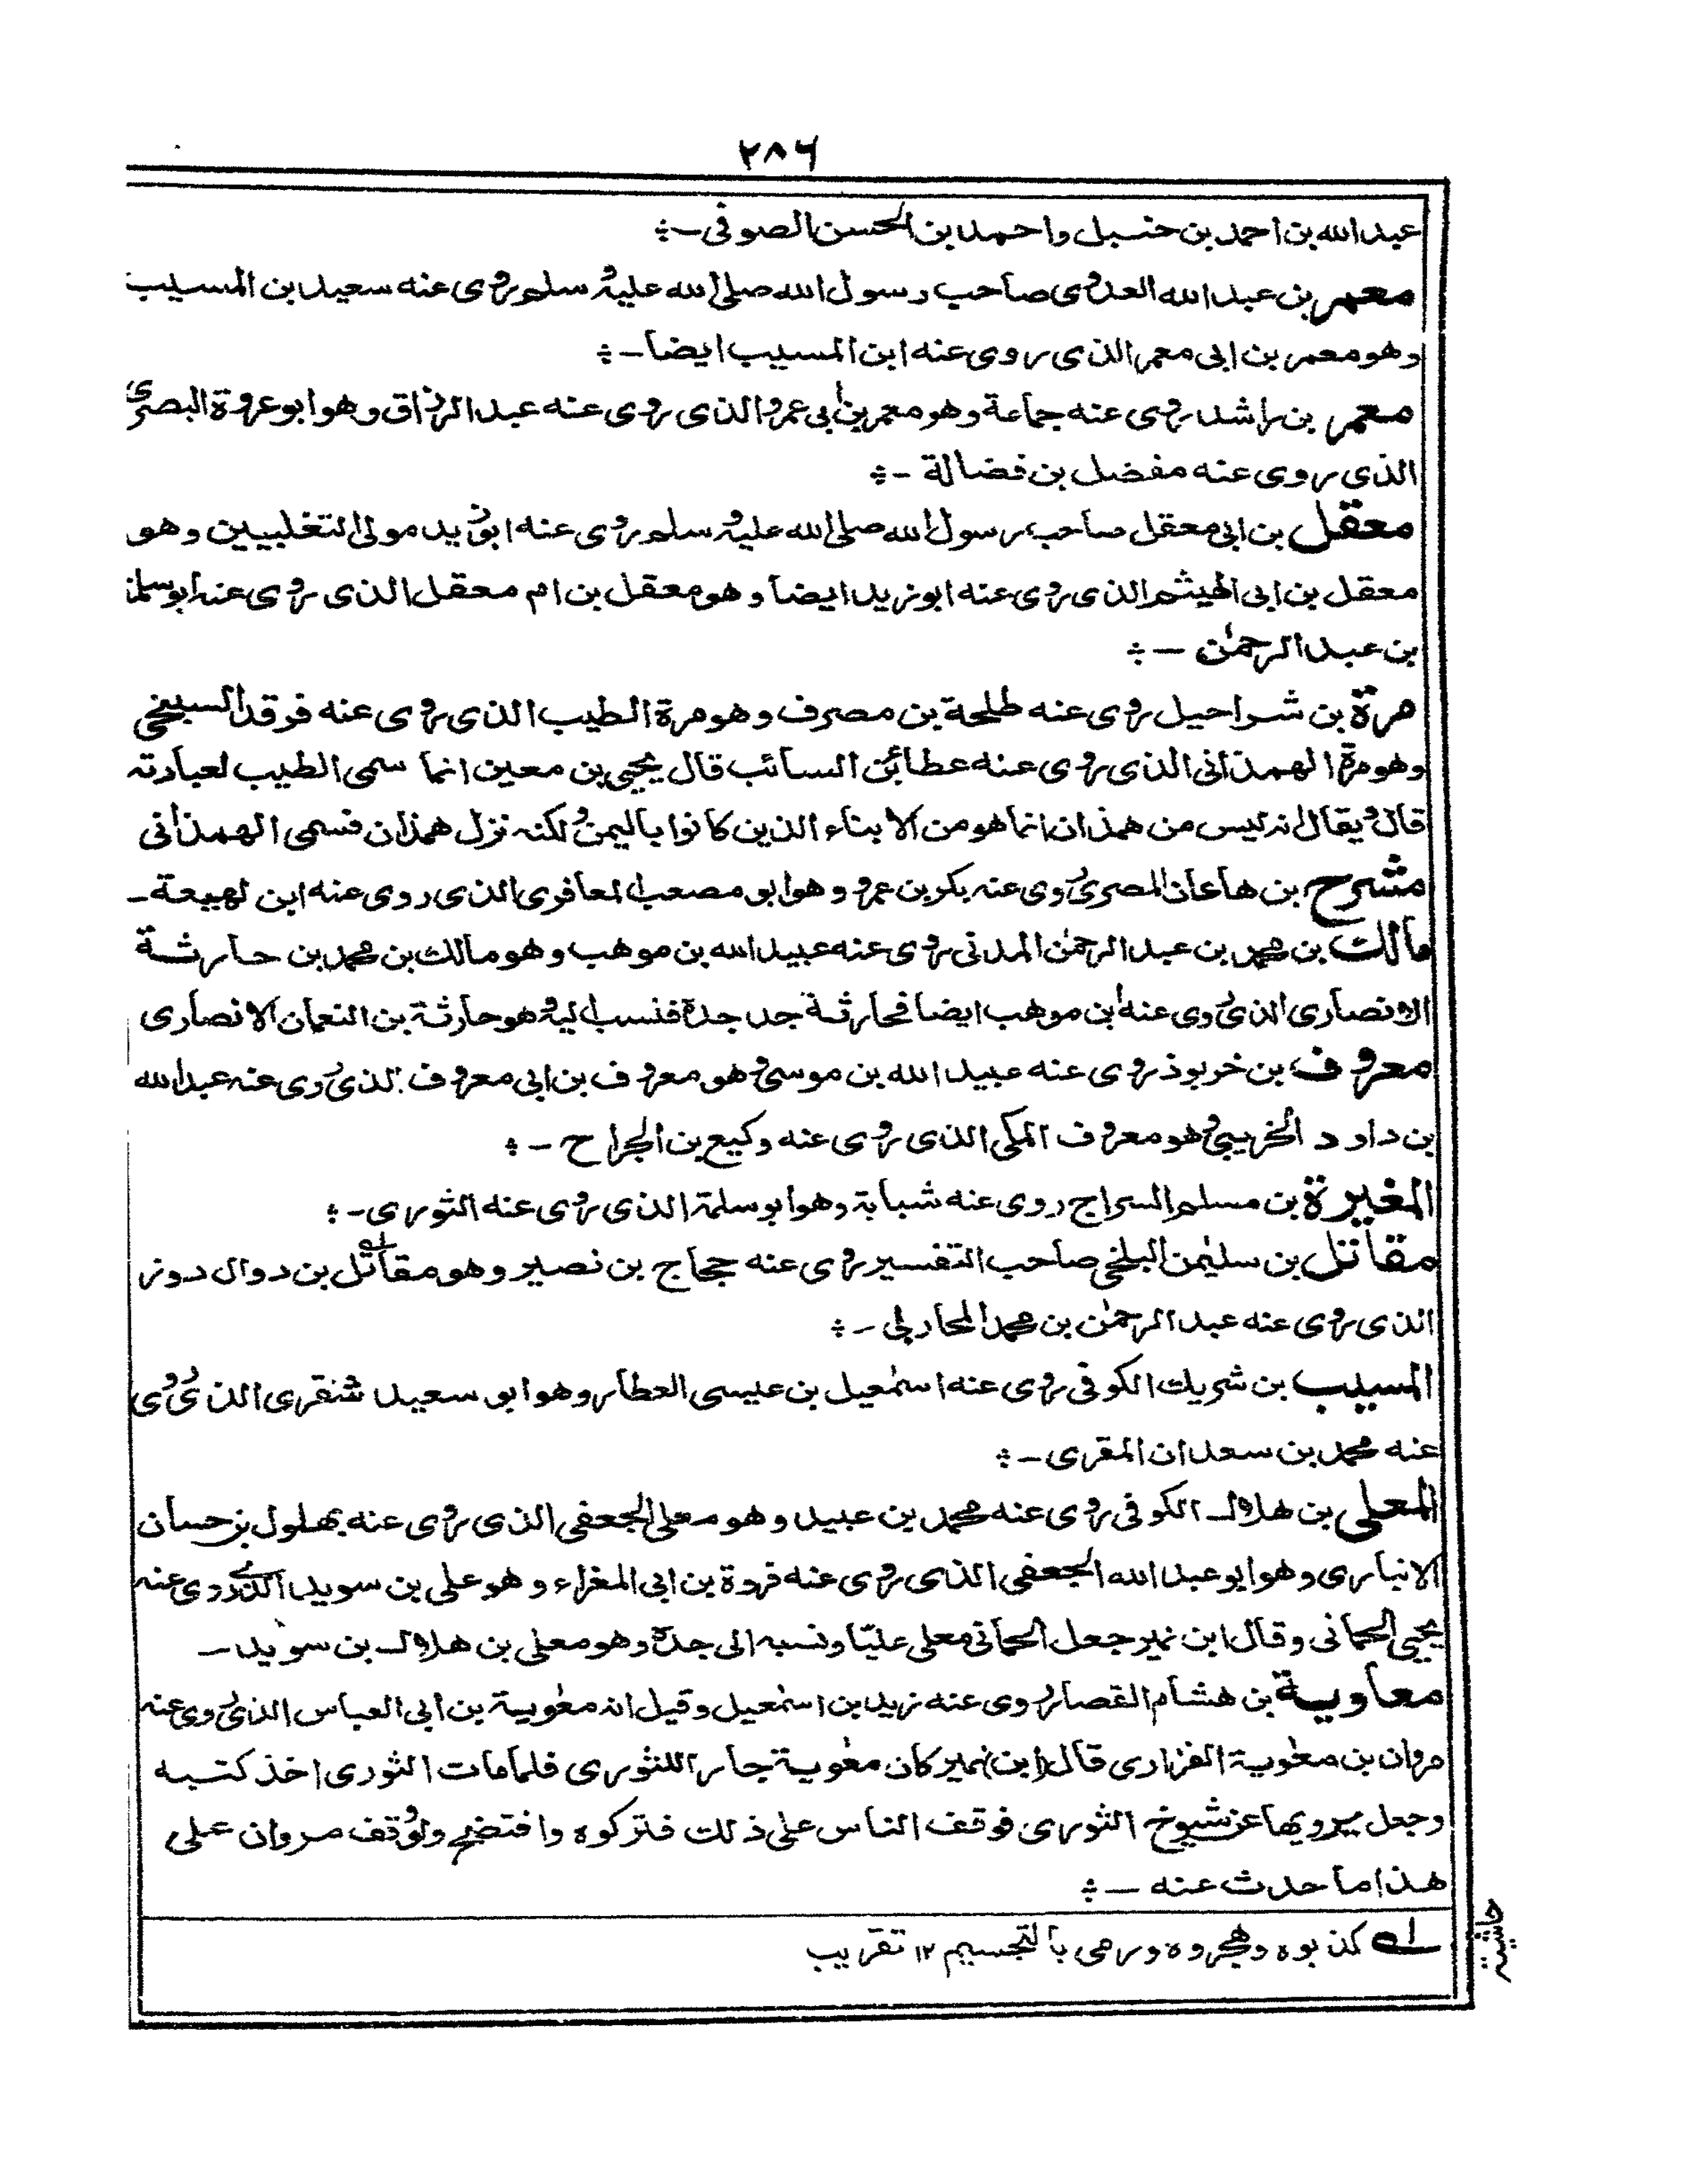 ٢٨٦
عبد الله بن احمد بن حنبل واحمد بن الحسن الصوفى -
معمر بن عبد الله العدوى صاحب رسول الله صلى الله عليه وسلم روى عنه سعيد بن المسيب
وهو معمر بن ابى معمر الذى روى عنه ابن المسيب ايضا -
معمر بن راشد روى عنه جماعة وهو معمر بن ابى عمرو الذى روى عنه عبد الرزاق وهو ابو عروة البصرى
الذى روى عنه مفضل بن فضالة -
معقل بن ابى معقل صاحب رسول الله صلى الله عليه وسلم روى عنه ابو زيد مولى التغلبيين وهو
معقل بن ابى الهيثم الذى روى عنه ابو زيد ايضا وهو معقل بن ام معقل الذى روى عنه ابو سلمة
بن عبد الرحمٰن -
مرة بن شراحيل روى عنه طلحة بن مصرف وهو مرة الطيب الذى روى عنه فرقد السبخى
وهو مرة الهمذانى الذى روى عنه عطاء بن السائب قال يحيى بن معين انما سمى الطيب لعبادته
قال ويقال انه ليس من همذان انما هو من الابناء الذين كانوا باليمن ولكنه نزل همذان فسمى الهمذانى
مشرح بن هاعان المصرى روى عنه بكر بن عمرو وهو ابو مصعب المعافرى الذى روى عنه ابن لهيعة -
مالك بن محمد بن عبد الرحمٰن المدنى روى عنه عبيد الله بن موهب وهو مالك بن محمد بن حارثة
الانصارى الذى روى عنه ابن موهب ايضا فحارثة جد جدة فنسب اليه وهو حارثة بن النعمان الانصارى
معروف بن خربوذ روى عنه عبيد الله بن موسى وهو معروف بن ابى معروف الذى روى عنه عبد الله
بن داود الخريبى وهو معروف المكى الذى روى عنه وكيع بن الجراح -
المغيرة بن مسلم السراج روى عنه شبابة وهو ابو سلمة الذى روى عنه الثورى -
مقاتل بن سليمٰن البلخى صاحب التفسير روى عنه حجاج بن نصير وهو مقاتل بن دوال دوز
الذى روى عنه عبد الرحمٰن بن محمد المحاربى -
المسيب بن شريك الكوفى روى عنه اسمٰعيل بن عيسى العطار وهو ابو سعيد شقرى الذى روى
عنه محمد بن سعدان المقرى -
المعلى بن هلال الكوفى روى عنه محمد بن عبيد وهو معلى الجعفى الذى روى عنه بهلول بن حسان
الانبارى وهو ابو عبد الله الجعفى الذى روى عنه فروة بن ابى المغراء وهو على بن سويد الذى روى عنه
يحيى الحمانى وقال ابن نمير جعل الحمانى معلى عليّا ونسبه الى جدة وهو معلى بن هلال بن سويد -
معاوية بن هشام القصار روى عنه زيد بن اسمٰعيل وقيل انه معٰوية بن ابى العباس الذى روى عنه
مروان بن معٰوية الفزارى قال (ابن) نمير كان معٰوية جار اللثورى فلما مات الثورى اخذ كتبه
وجعل يرويها عن شيوخ الثورى فوقف الناس على ذلك فتركوه وافتضح ولو وقف مروان على
هذا ما حدث عنه -
له كذبوه وهجروه ورمى بالتجسيم ١٢ تقريب
حاشيه